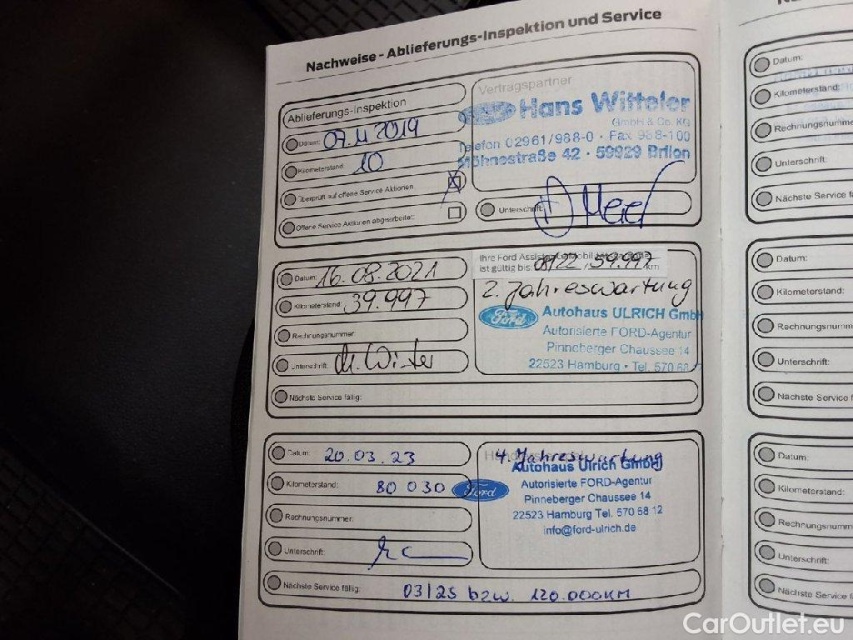 Nachweise - Ablieferungs-Inspektion und Service
Ablieferungs-Inspektion
Datum: 07.11.2019
Kilometerstand: 10
Überprüft auf offene Service Aktionen
Offene Service Aktionen abgearbeitet:
Vertragspartner
Hans Witteler
GmbH & Co. KG
Telefon 02961/988-0 · Fax 988-100
Möhnestraße 42 · 59929 Brilon
Unterschrift:
Datum: 16.08.2021
Kilometerstand: 39.997
Rechnungsnummer:
Unterschrift:
Nächste Service fällig:
Ihre Ford Assistance
ist gültig bis: 08/22 / 59.997 km
2. Jahreswartung
Ford
Autohaus ULRICH GmbH
Autorisierte FORD-Agentur
Pinneberger Chaussee 14
22523 Hamburg · Tel. 570 58
Datum: 20.03.23
Kilometerstand: 80 030
Rechnungsnummer:
Unterschrift:
Nächste Service fällig: 03/25 bzw. 120.000KM
4. Jahreswartung
Ford
Autohaus Ulrich GmbH
Autorisierte FORD-Agentur
Pinneberger Chaussee 14
22523 Hamburg Tel. 570 58 12
info@ford-ulrich.de
Datum:
Kilometerstand:
Rechnungsnumme
Unterschrift:
Nächste Service f
Datum:
Kilometerstand:
Rechnungsnumm
Unterschrift:
Nächste Service f
Datum:
Kilometerstand:
Rechnungsnumm
Unterschrift:
Nächste Service
CarOutlet.eu